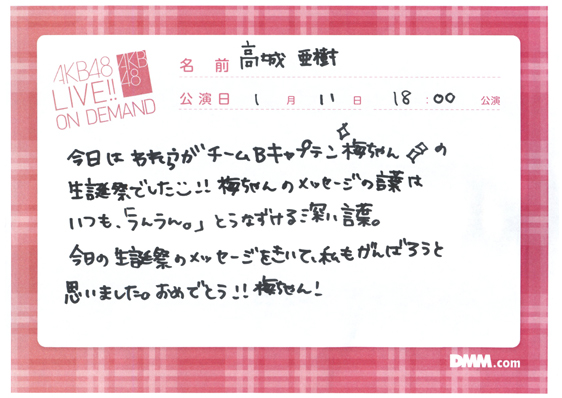 AKB48
LIVE!!
ON DEMAND
AKB
48
名前 高城 亜樹
公演日 1月11日 18:00 公演
今日はわれらがチームBキャプテン梅ちゃんの
生誕祭でしたこ!! 梅ちゃんのメッセージの言葉は
いつも、「うんうん。」とうなずける深い言葉。
今日の生誕祭のメッセージをきいて、私もがんばろうと
思いました。おめでとう!! 梅ちゃん!
DMM.com